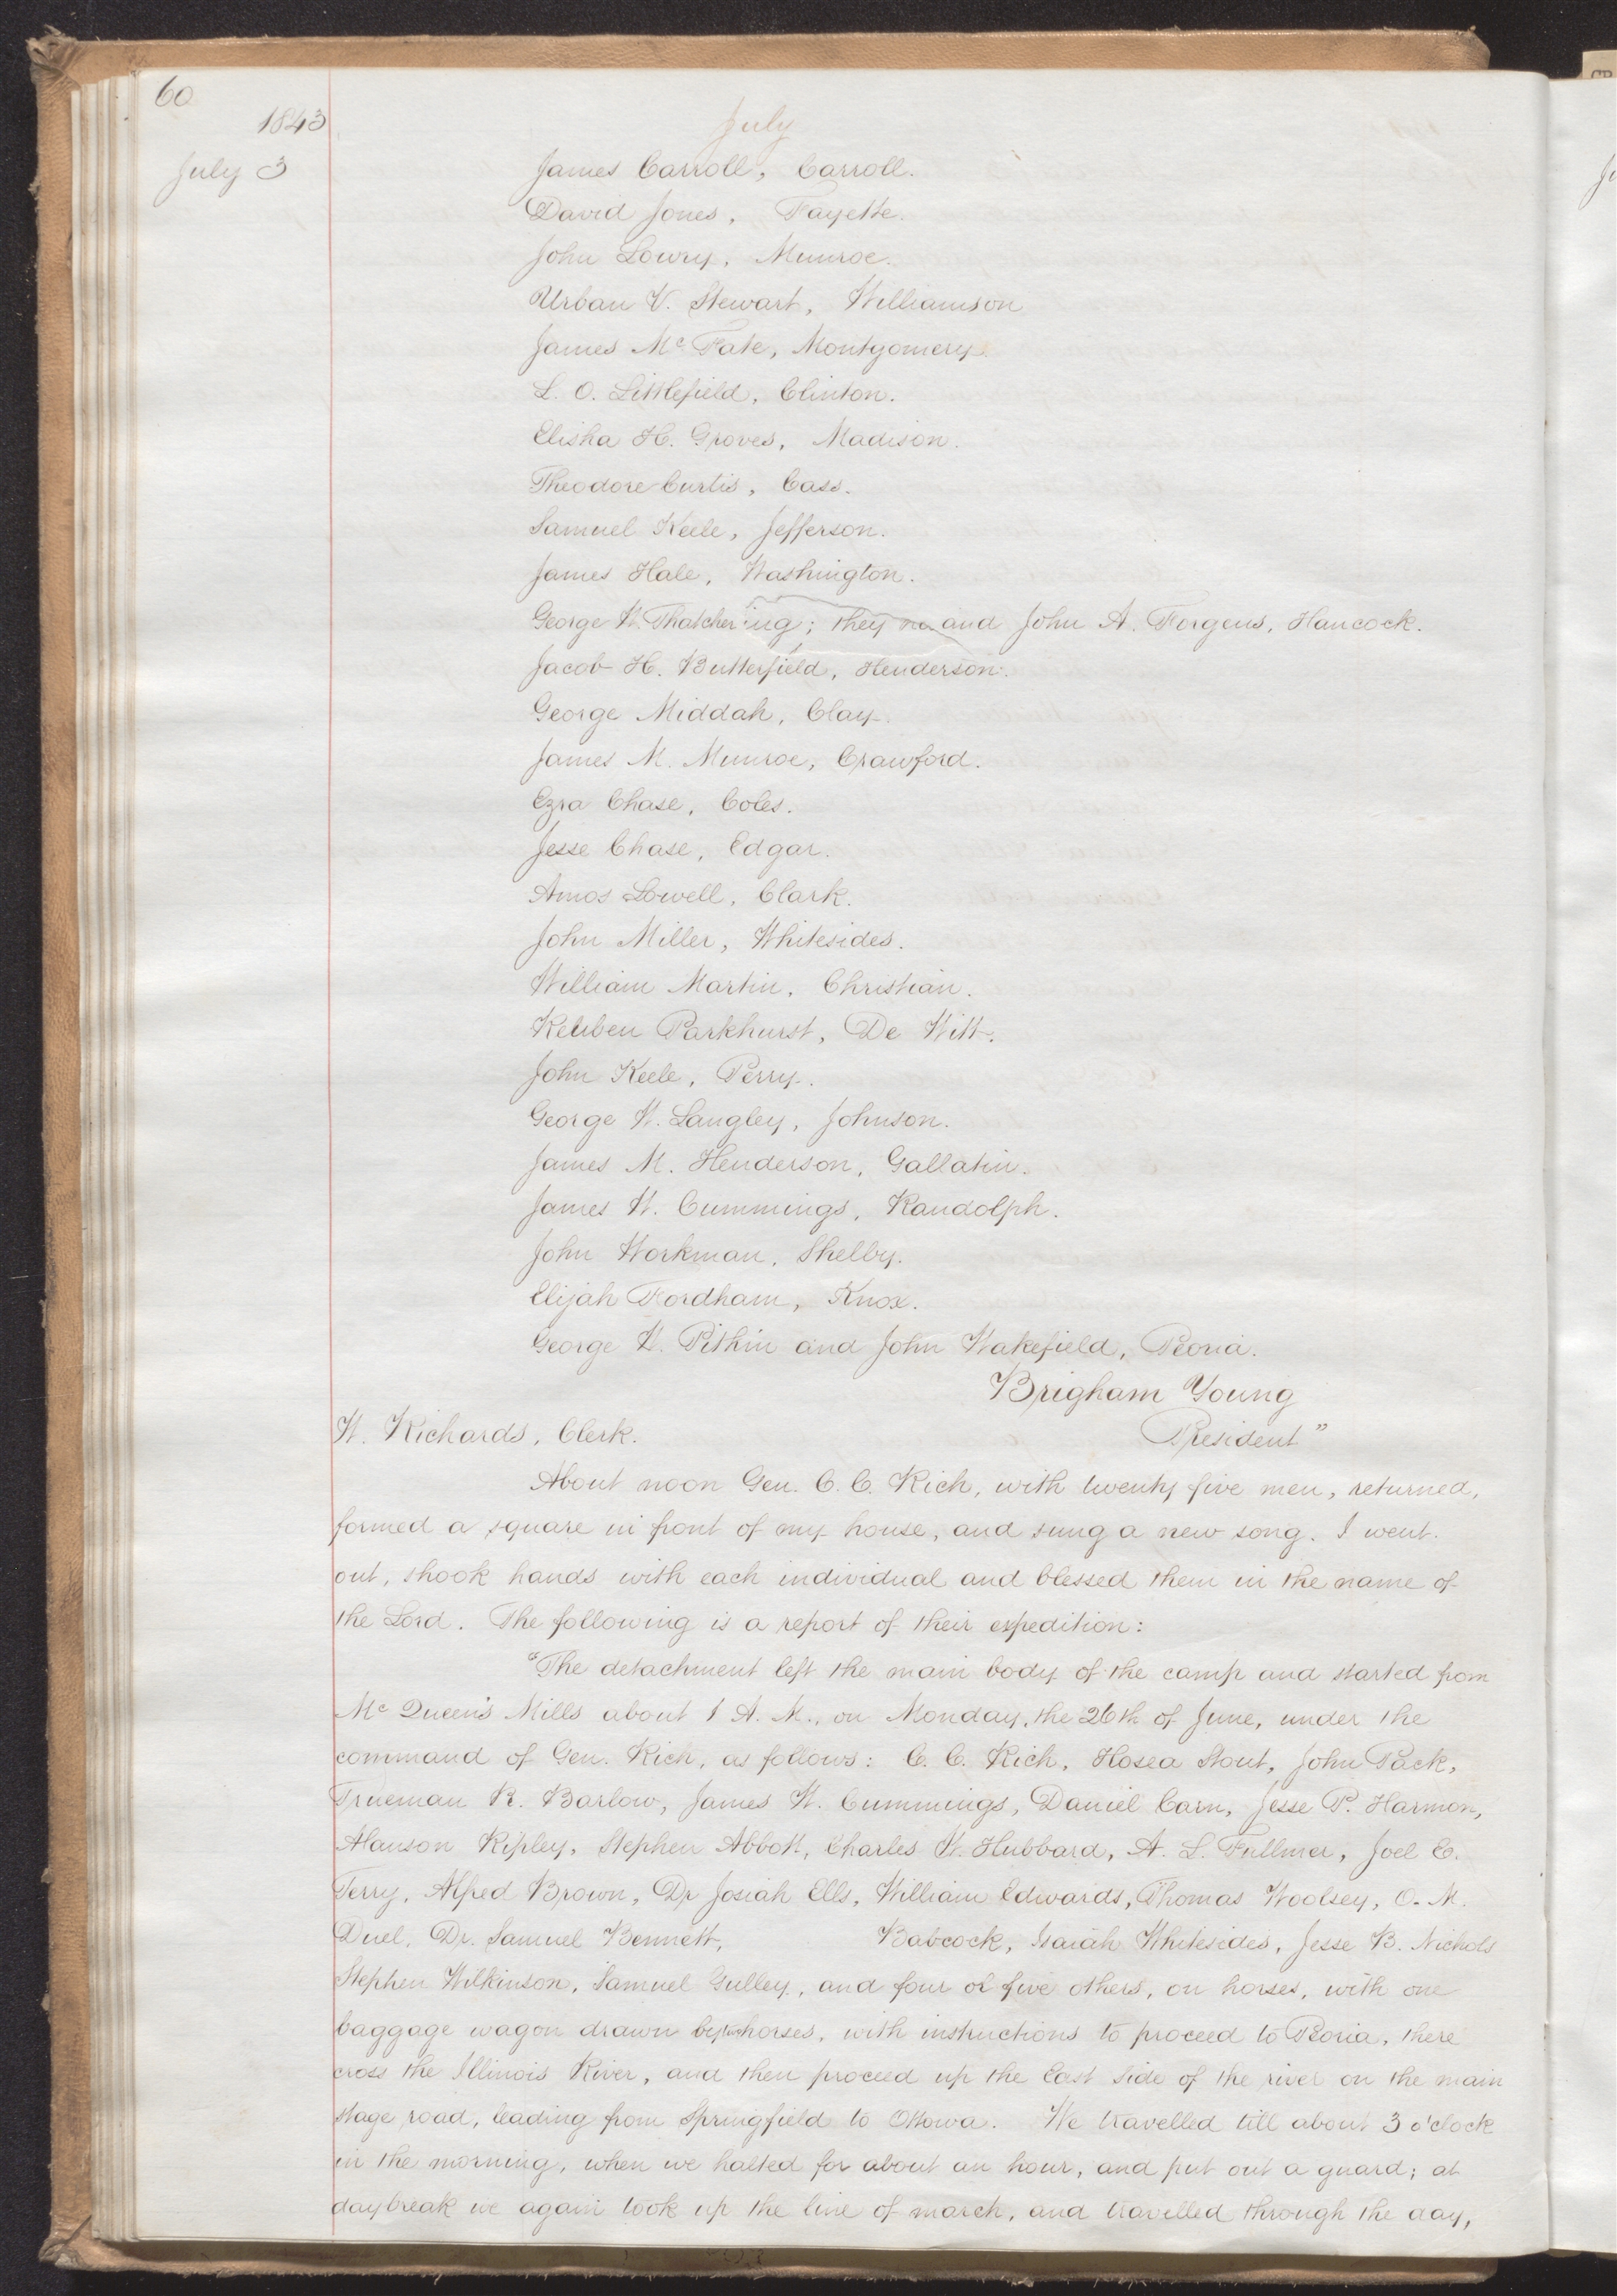 60
1843
July
July 3
James Carroll, Carroll.
David Jones, Fayette.
John Lowry, Munroe.
Urban V. Stewart, Williamson
James Mc Fate, Montgomery.
L. O. Littlefield, Clinton.
Elisha H. Groves, Madison.
Theodore Curtis, Cass.
Samuel Keele, Jefferson.
James Hale, Washington.
George W. Thatcher ing; they no and John A. Forgeus, Hancock.
Jacob H. Butterfield, Henderson.
George Middah, Clay.
James M. Munroe, Crawford.
Ezra Chase, Coles.
Jesse Chase, Edgar.
Amos Lowell, Clark.
John Miller, Whitesides.
William Martin, Christian.
Reuben Parkhurst, De Witt.
John Keele, Perry.
George W. Langley, Johnson.
James M. Henderson, Gallatin.
James W. Cummings, Randolph.
John Workman, Shelby.
Elijah Fordham, Knox.
George W. Pitkin and John Wakefield, Peoria.
Brigham Young
W. Richards, Clerk. President"
About noon Gen. C. C. Rich, with twenty five men, returned,
formed a square in front of my house, and sung a new song. I went
out, shook hands with each individual and blessed them in the name of
the Lord. The following is a report of their expedition:
"The detachment left the main body of the camp and started from
Mc Queen's Mills about 1 A. M., on Monday, the 26th of June, under the
command of Gen. Rich, as follows: C. C. Rich, Hosea Stout, John Pack,
Trueman R. Barlow, James W. Cummings, Daniel Carn, Jesse P. Harmon,
Alanson Ripley, Stephen Abbott, Charles W. Hubbard, A. L. Fullmer, Joel E.
Terry, Alfred Brown, Dr Josiah Ells, William Edwards, Thomas Woolsey, O. M.
Duel, Dr. Samuel Bennett, Babcock, Isaiah Whitesides, Jesse B. Nichols
Stephen Wilkinson, Samuel Gulley, and four or five others, on horses, with one
baggage wagon drawn by two horses, with instructions to proceed to Peoria, there
cross the Illinois River, and then proceed up the East side of the river on the main
stage road, leading from Springfield to Ottowa. We travelled till about 3 o'clock
in the morning, when we halted for about an hour, and put out a guard; at
daybreak we again took up the line of march, and travelled through the day,